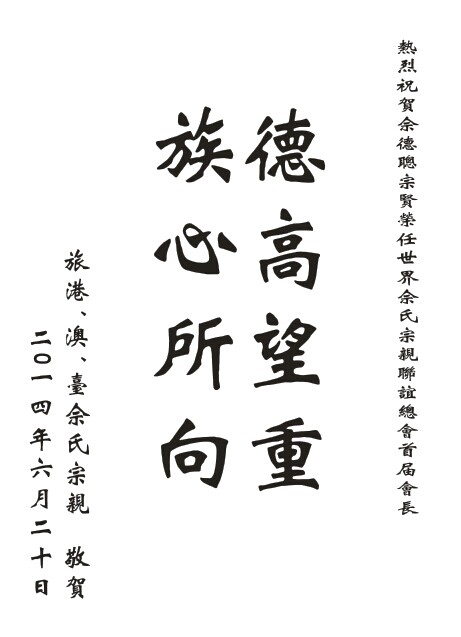 熱烈祝賀佘德聰宗賢榮任世界佘氏宗親聯誼總會首届會長
德高望重
族心所向
旅港、澳、臺佘氏宗親 敬賀
二〇一四年六月二十日